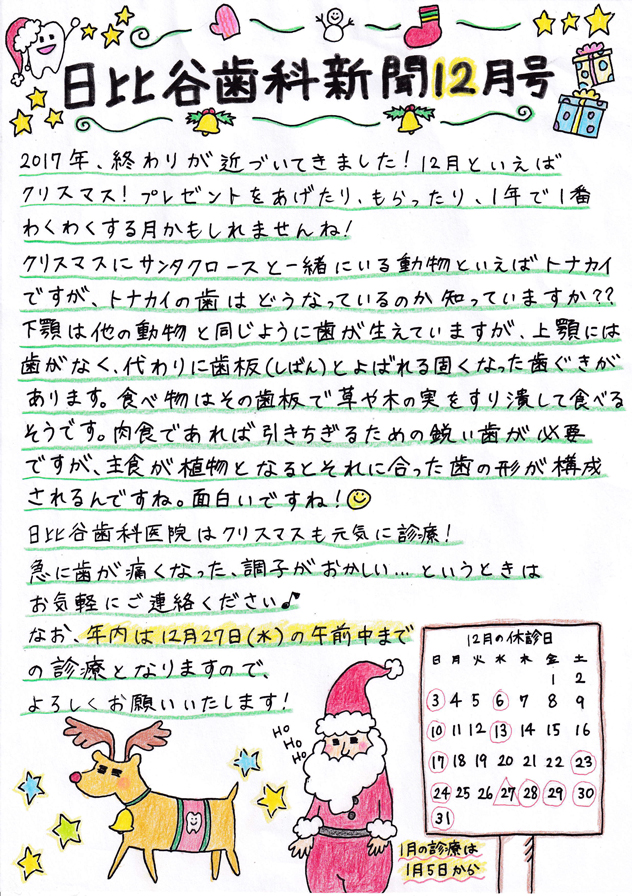 日比谷歯科新聞12月号
2017年、終わりが近づいてきました！12月といえば
クリスマス！プレゼントをあげたり、もらったり、1年で1番
わくわくする月かもしれませんね！
クリスマスにサンタクロースと一緒にいる動物といえばトナカイ
ですが、トナカイの歯はどうなっているのか知っていますか??
下顎は他の動物と同じように歯が生えていますが、上顎には
歯がなく、代わりに歯板(しばん)とよばれる固くなった歯ぐきが
あります。食べ物はその歯板で草や木の実をすり潰して食べる
そうです。肉食であれば引きちぎるための鋭い歯が必要
ですが、主食が植物となるとそれに合った歯の形が構成
されるんですね。面白いですね！
日比谷歯科医院はクリスマスも元気に診療！
急に歯が痛くなった、調子がおかしい…というときは
お気軽にご連絡ください♪
なお、年内は12月27日(水)の午前中まで
の診療となりますので、
よろしくお願いいたします！
Ho
Ho
Ho
12月の休診日
日 月 火 水 木 金 土
1 2
3 4 5 6 7 8 9
10 11 12 13 14 15 16
17 18 19 20 21 22 23
24 25 26 27 28 29 30
31
1月の診療は
1月5日から